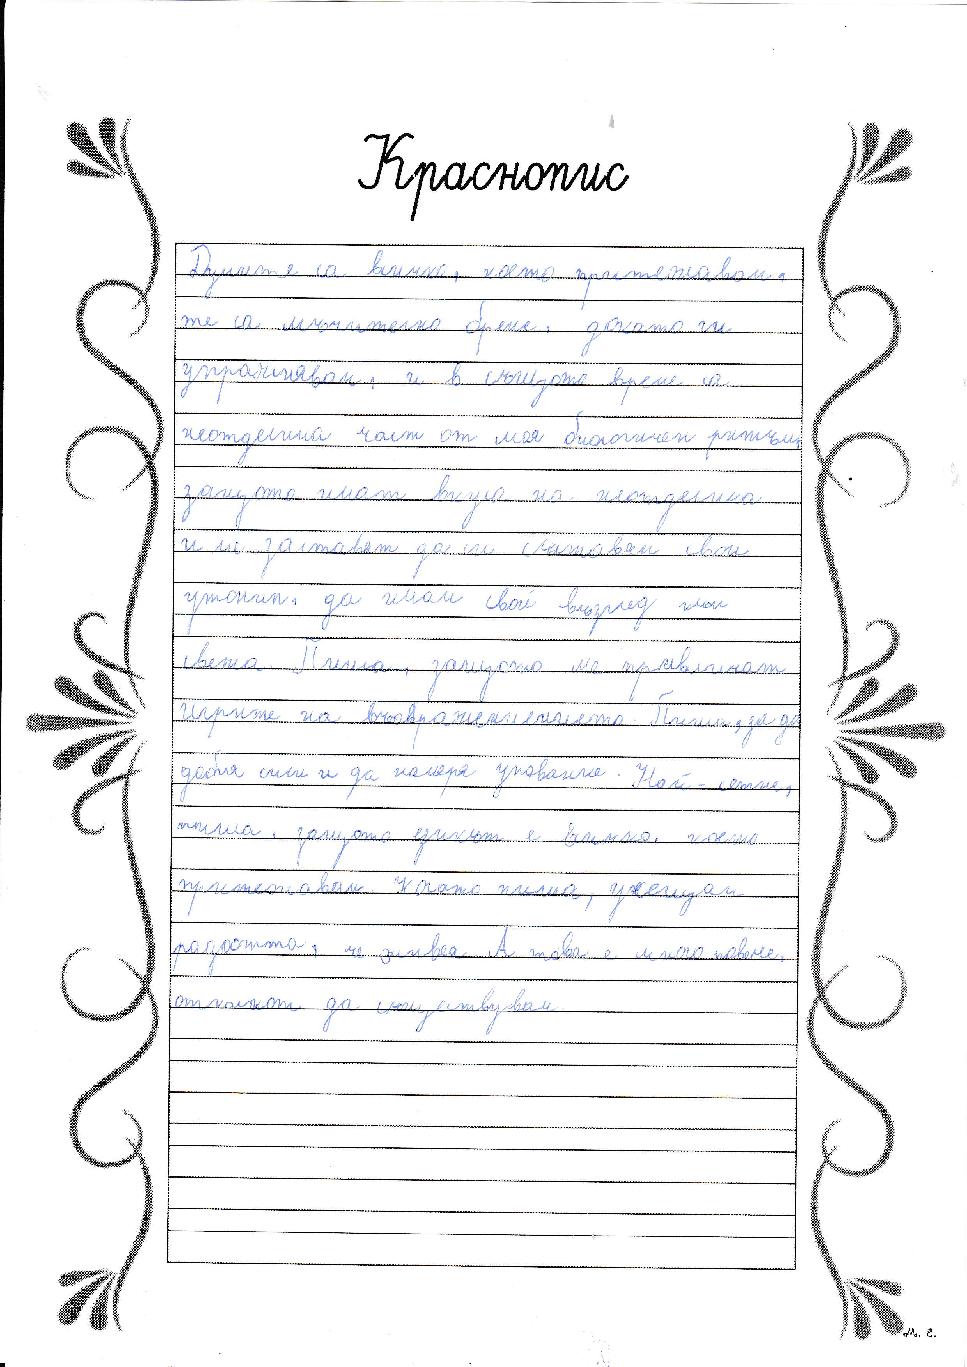 Краснопис
Думите са всичко, което притежавам.
те са мъчително бреме, докато ги
упражнявам, и в същото време са
неотделима част от моя биологичен ритъм,
защото имат вкуса на неотделима
и ме заставят да си съставям свои
утопии, да имам свой възглед към
света. Пиша, защото ме привличат
игрите на въображението. Пиша, за да
добия сили и да намеря упование. Най-сетне,
пиша, защото езикът е всичко, което
притежавам. Когато пиша, усещам
радостта, че живея. А това е много повече,
отколкот да съществувам
М. Г.